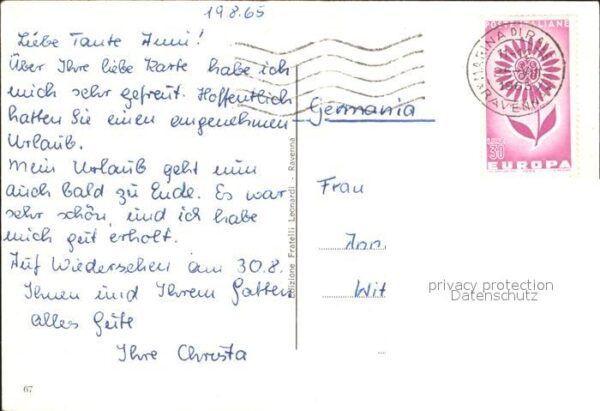 19.8.65
Liebe Tante Anni!
Über Ihre liebe Karte habe ich
mich sehr gefreut. Hoffentlich
hatten Sie einen angenehmen
Urlaub.
Mein Urlaub geht nun
auch bald zu Ende. Es war
sehr schön, und ich habe
mich gut erholt.
Auf Wiedersehen am 30.8.
Ihnen und Ihrem Gatten
alles Gute
Ihre Christa
67
Edizione Fratelli Leonardi - Ravenna
POSTE ITALIANE
MARINA DI RA
RAVENN
LIRE
30
EUROPA
Germania
Frau
Ann
Wit
privacy protection
Datenschutz